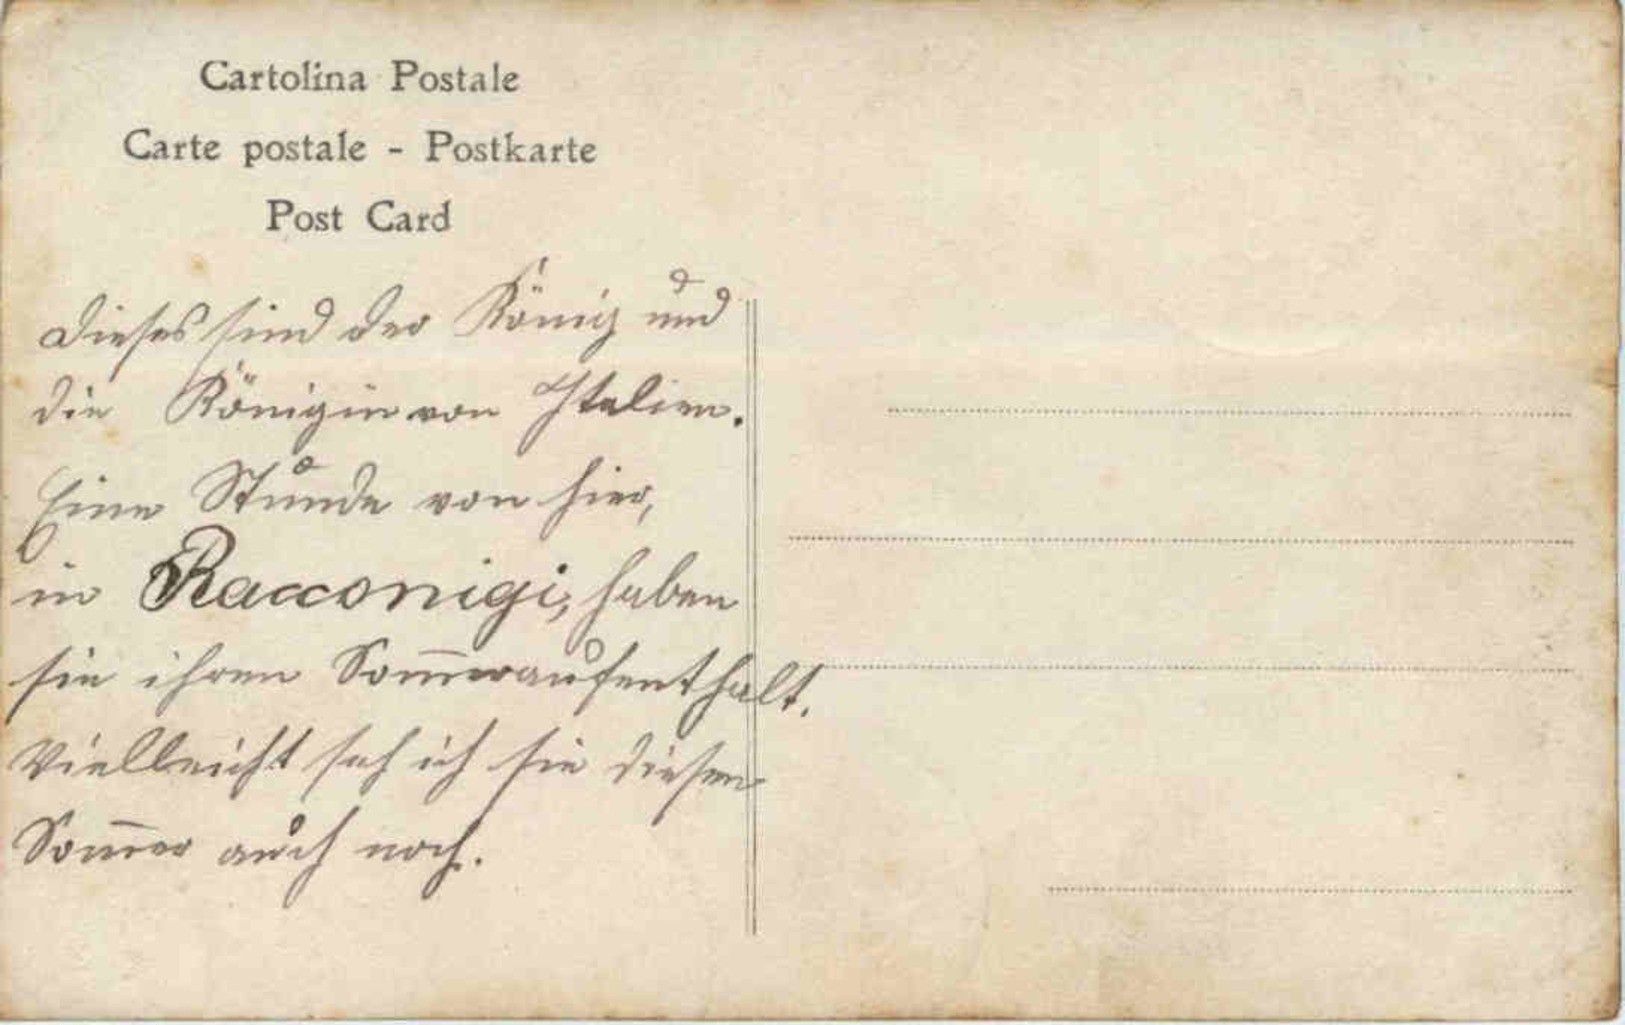 Cartolina Postale
Carte postale - Postkarte
Post Card
Dieses sind der König und
die Königin von Italien.
Eine Stunde von hier,
in Racconigi, haben
sie ihren Som̅eraufenthalt.
Vielleicht seh ich sie diesen
Som̅er auch noch.